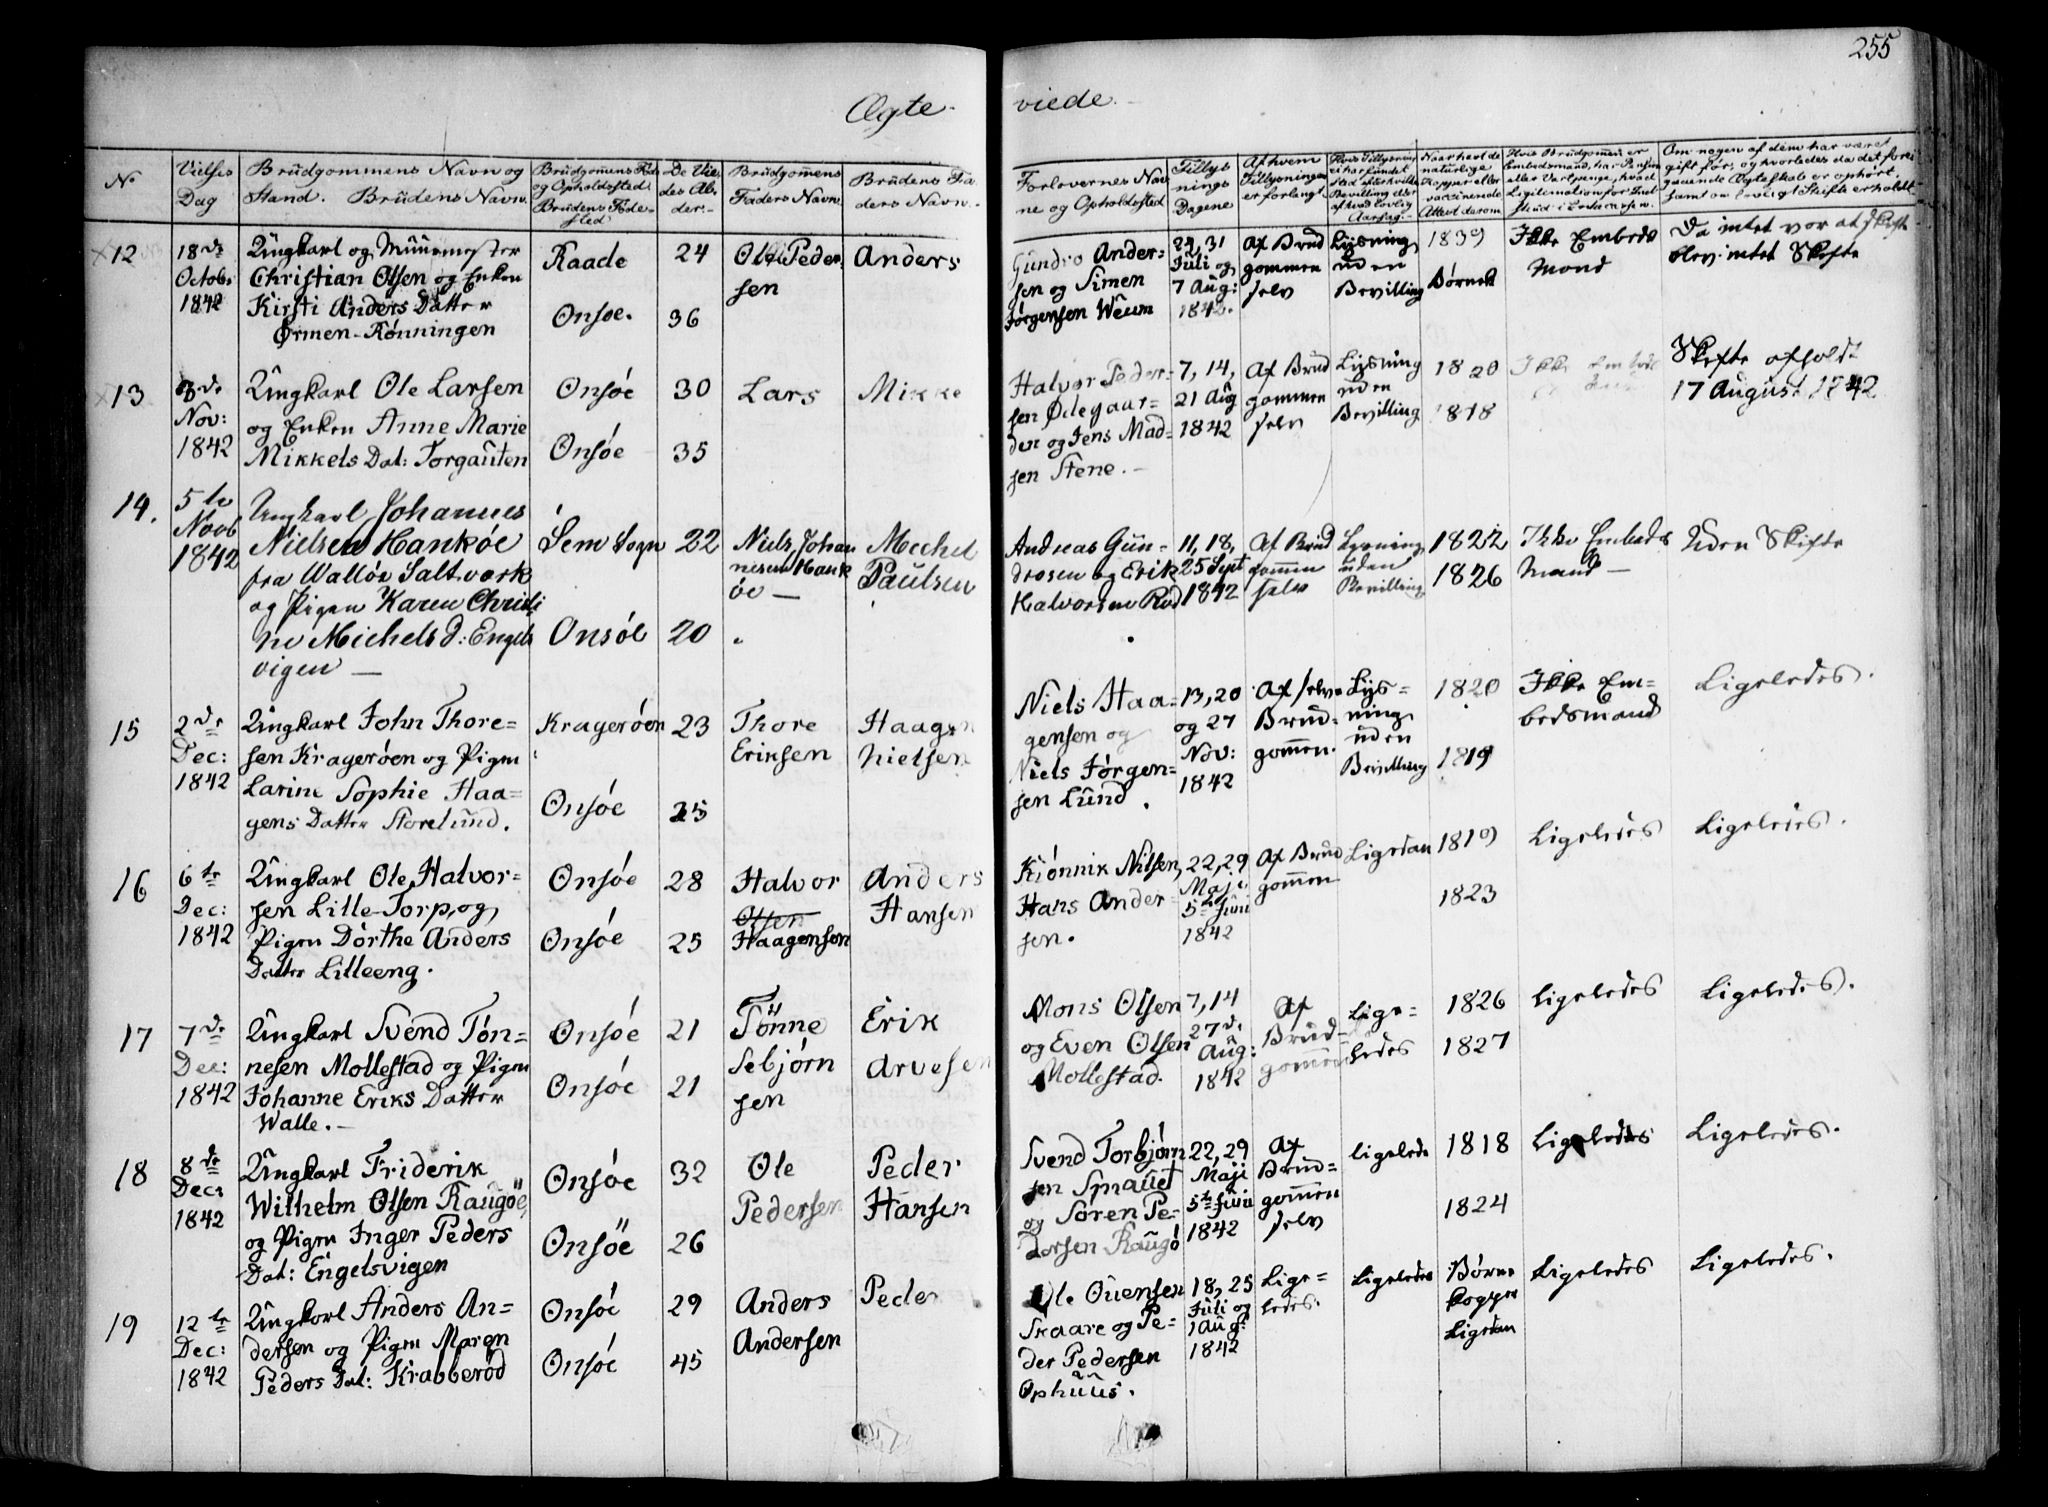 255
Ægte
viede.
No
Vielses Dag
Brudgommens Navn og Stand. Brudens Navn.
Brudgomens Føde og Opholdssted. Brudens Fødested
De Viedes Alder.
Brudgomens Faders Navn.
Brudens Faders Navn.
Forlovernes Navne og Opholdsted
Tillysnings Dagene
Af hvem Tillysningen er forlangt
12
18de Octobr 1842
Ungkarl og Muurmester
Christian Olsen og Enken
Kirsti Anders Datter
Ørmen-Rønningen
Raade
Onsøe.
24
36
Ole Peder
sen
Anders
Gundro Ander-
sen og Simen
Jørgensen Weum
24, 31
Juli og
7 Aug:
1842.
Af Brud
gommen
selv
Lysning
uden
Bevilling
1839
Ikke Embeds
Mand
Da intet var at skifte
blev intet Skifte
13
3de
Nov:
1842
Ungkarl Ole Larsen
og Enken Anne Marie
Mikkels Dat: Torgauten
Onsøe
Onsøe
30
35
Lars
Mikke
Halvor Peder-
sen Ødegaar-
den og Jens Mad-
sen Stene.
7, 14,
21 Aug
1842
Af Brud
gommen
selv
Lysning
uden
Bevilling
1820
1818
Skifte afholdt
17 August 1842
14.
5te
Novb
1842
Ungkarl Johannes
Nielsen Hankøe
fra Walløe Saltværk
og Pigen Karen Christi
ne Michelsd: Engels
vigen
Sem Sogn
Onsøe
22
20
Niels Johan
nesen Hank
øe
Mechel
Paulsen
Andreas Gun-
drosen og Erik
Halvorsen Rød
11, 18,
25 Sept
1842
Af Brud
gommen
selv
Lysning
uden
Bevilling
1822
1826
Ikke Embeds
Mand
Uden Skifte
15
2de
Dec:
1842
Ungkarl John Thore-
sen Kragerøen og Pigen
Larine Sophie Haa-
gens Datter Storelund.
Kragerøen
Onsøe
23
25
Thore
Eriksen
Haagen
Nielsen
Niels Haa-
gensen og
Niels Jørgen-
sen Lund.
13, 20
og 27
Nov:
1842
Af selve
Brud-
gommen.
Lys-
ning
uden
Bevilling
1820
1819
Ikke Em-
bedsmand
Ligeledes.
16
6te
Dec:
1842
Ungkarl Ole Halvor-
sen Lille-Torp, og
Pigen Dorthe Anders
Datter Lilleeng.
Onsøe
Onsøe
28
25
Halvor
Olsen
Haagensen
Anders
Hansen
Kiønnik Nilsen,
Hans Ander-
sen.
22, 29
Maji
5te Juni
1842
Af Brud
gommen
Ligedan
1819
1823
Ligeledes
Ligeledes.
17
7de
Dec:
1842
Ungkarl Svend Tøn-
nesen Mollestad og Pigen
Johanne Eriks Datter
Walle.
Onsøe
Onsøe
21
21
Tønne
Sebjørn
sen
Erik
Arvesen
Mons Olsen
og Even Olsen
Mollestad.
7, 14
27de
Aug:
1842
Af
Brud-
gommen
Lige-
ledes
1826
1827
Ligeledes
Ligeledes.
18
8de
Dec:
1842
Ungkarl Friderik
Wilhelm Olsen Raugöe,
og Pigen Inger Peders
Dat: Engelsvigen
Onsøe
Onsøe
32
26
Ole
Pedersen
Peder
Hansen
Svend Torbjørn
sen Smauet
og Søren Pe-
dersen Raugö
22, 29
Maji
5te Juni
1842
Af
Brud-
gommen
selv
ligelede
1818
1824
Ligeledes
Ligeledes.
19
12te
Dec:
1842
Ungkarl Anders An-
dersen og Pigen Maren
Peders Dat: Krabberød
Onsøe
Onsøe
29
45
Anders
Andersen
Peder
Ole Ouensen
Skaare og Pe-
der Pedersen
Ophuus.
18, 25
Juli og
1 Aug:
1842
Lige-
ledes.
Ligeledes
Børne
kopper
Ligedan
Ligeledes
Ligeledes.